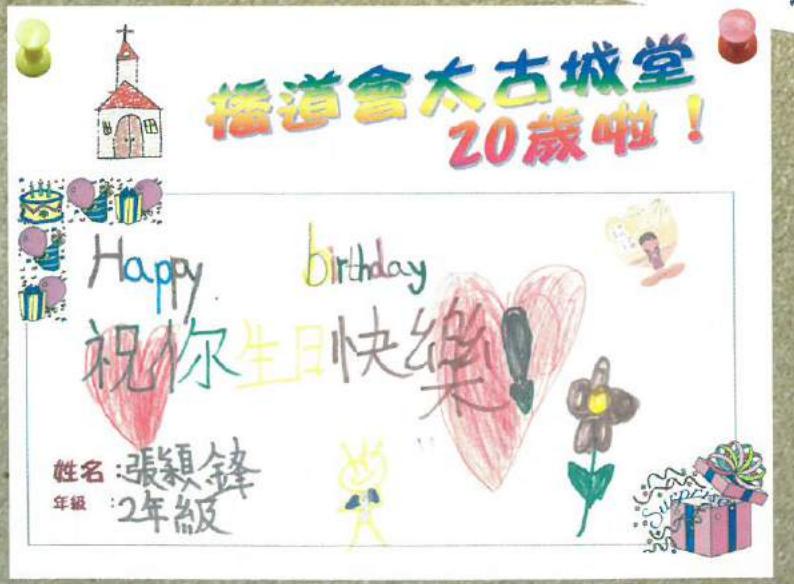 播道會太古城堂
20歲啦！
Happy birthday
祝你生日快樂！
姓名：張穎鋒
年級：2年級
Surprise